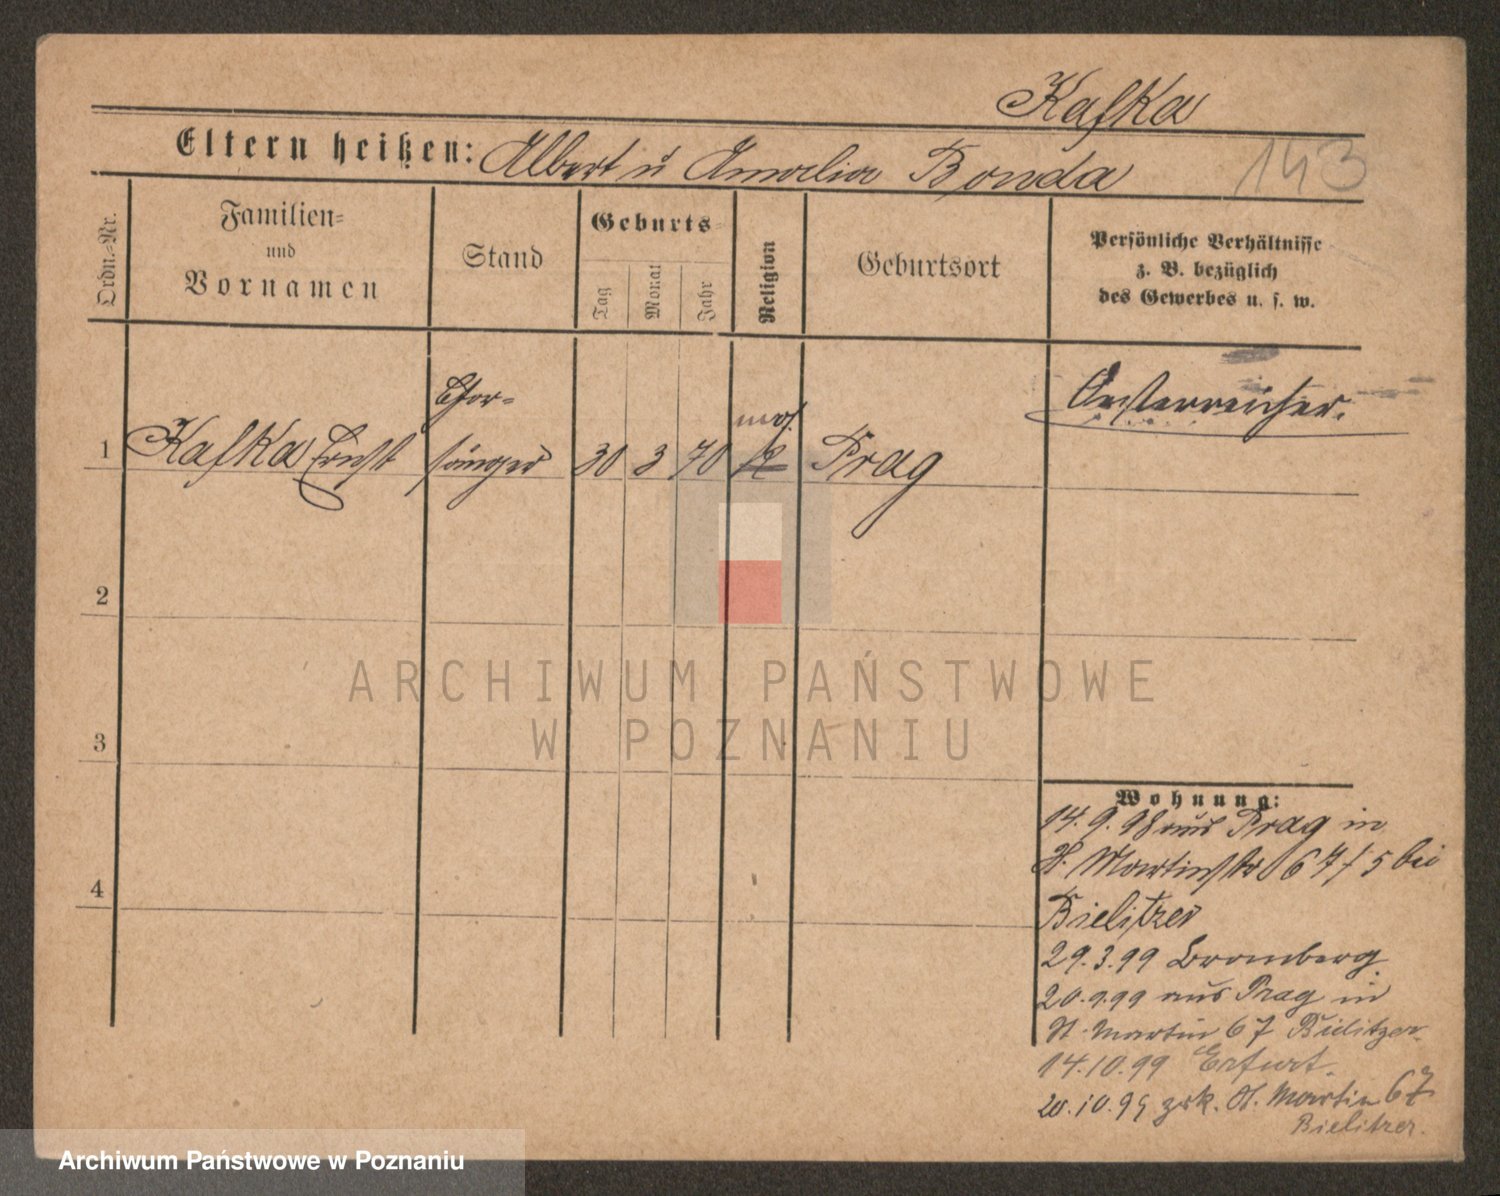 Kafka
Eltern heißen: Albert u Amalia Bonda
143
Ordn.-Nr.
Familien-
und
Vornamen
Stand
Geburts-
Tag
Monat
Jahr
Religion
Geburtsort
Persönliche Verhältnisse
z. B. bezüglich
des Gewerbes u. s. w.
Oesterreicher.
Chor-
mos.
1 Kafka Ernst sänger 30 3 70 k Prag
2
3
4
ARCHIWUM PAŃSTWOWE
W POZNANIU
Wohnung:
14. 9. 98 aus Prag in
St. Martinstr 67/5 bei
Bielitzer
29.3.99 Bromberg
20.9.99 aus Prag in
St. Martin 67 Bielitzer
14.10.99 Erfurt.
20.10.99 zrk. St. Martin 67
Bielitzer.
Archiwum Państwowe w Poznaniu